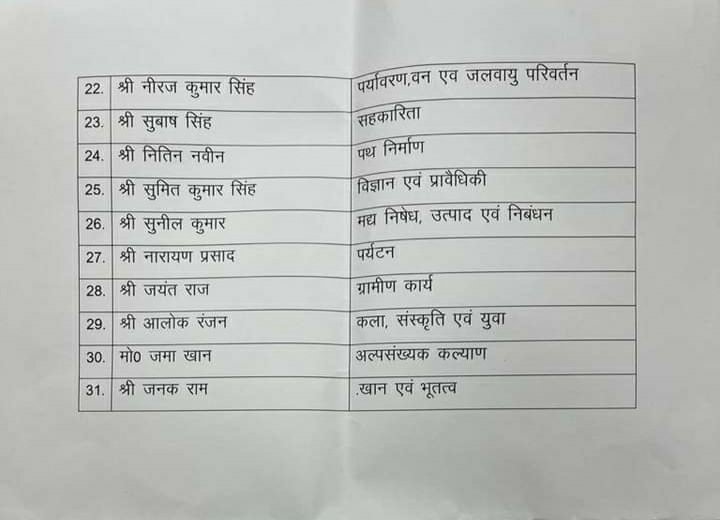 22. श्री नीरज कुमार सिंह पर्यावरण,वन एव जलवायु परिवर्तन
23. श्री सुबाष सिंह सहकारिता
24. श्री नितिन नवीन पथ निर्माण
25. श्री सुमित कुमार सिंह विज्ञान एवं प्रावैधिकी
26. श्री सुनील कुमार मद्य निषेध, उत्पाद एवं निबंधन
27. श्री नारायण प्रसाद पर्यटन
28. श्री जयंत राज ग्रामीण कार्य
29. श्री आलोक रंजन कला, संस्कृति एवं युवा
30. मो0 जमा खान अल्पसंख्यक कल्याण
31. श्री जनक राम .खान एवं भूतत्व